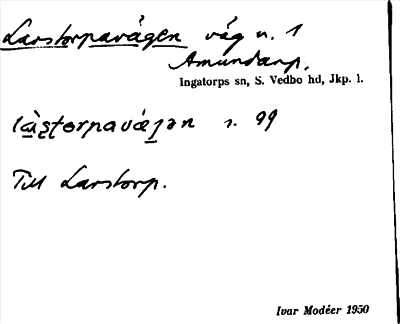 Larstorpavägen väg n. 1
Amundarp.
Ingatorps sn, S. Vedbo hd, Jkp. l.
s. 99
Till Larstorp.
Ivar Modéer 1950